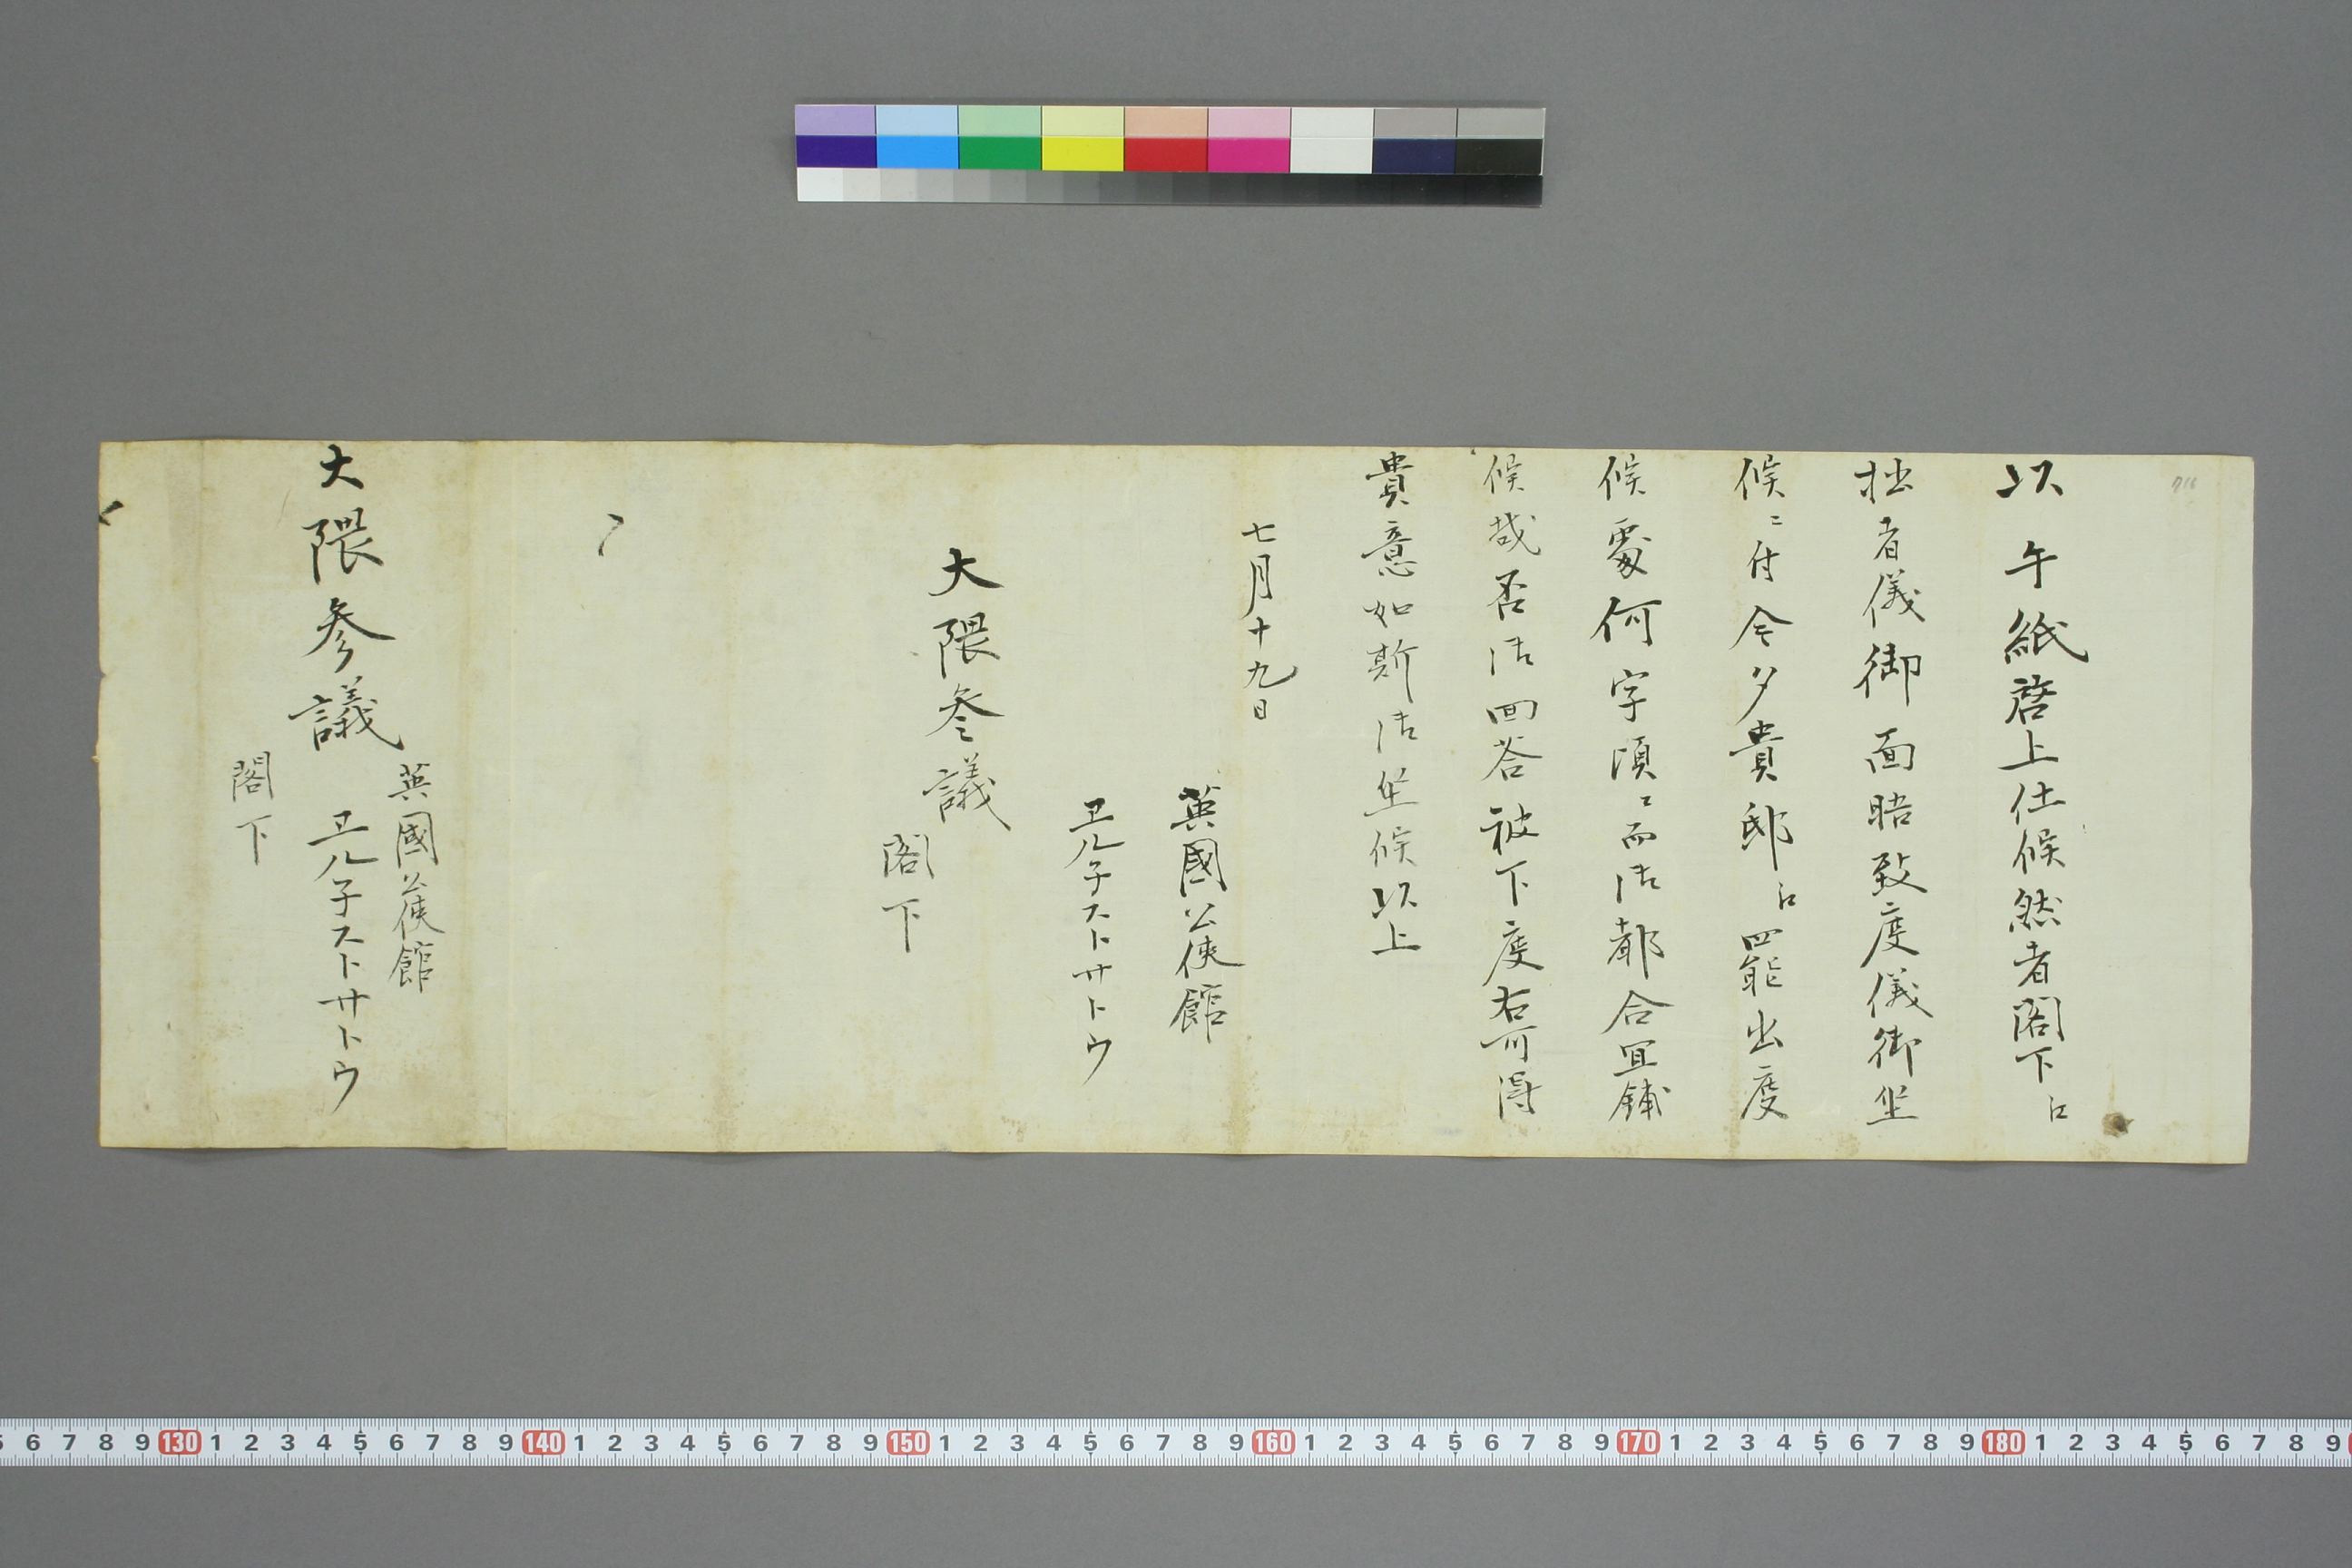 以午紙啓上仕候然者閣下江
拙者儀御面晤致度儀御坐
候ニ付今夕貴邸江罷出度
候處何字頃ニ而御都合宜鋪
候哉否御回答被下度右可得
貴意如斯御坐候以上
七月十九日
英國公使館
ヱルネストサトウ
大隈参議
閣下
英國公使館
ヱルネストサトウ
大隈参議
閣下
716
6 7 8 9 130 1 2 3 4 5 6 7 8 9 140 1 2 3 4 5 6 7 8 9 150 1 2 3 4 5 6 7 8 9 160 1 2 3 4 5 6 7 8 9 170 1 2 3 4 5 6 7 8 9 180 1 2 3 4 5 6 7 8 9